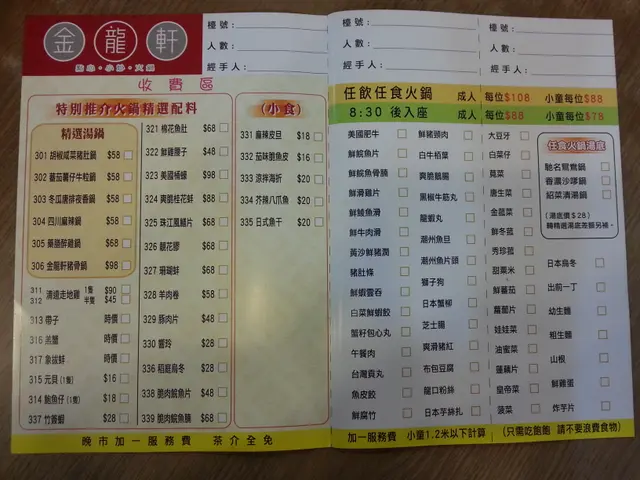 金龍軒
點心・小炒・火鍋
檯號:
人數:
經手人:
收費區
特別推介火鍋精選配料
精選湯鍋
301 胡椒咸菜豬肚鍋 $58
302 蕃茄薯仔牛𦟌鍋 $58
303 冬瓜唐排夜香鍋 $58
304 四川麻辣鍋 $58
305 藥膳醉雞鍋 $68
306 金龍軒豬骨鍋 $98
311 清遠走地雞 1隻 $90
312 半隻 $45
313 帶子 時價
316 羔蟹 時價
317 象拔蚌 時價
315 元貝(1隻) $16
314 鮑魚仔(1隻) $18
337 竹笙蝦 $28
321 棉花魚肚 $68
322 鮮雞腰子 $48
323 美國桶蠔 $98
324 爽脆桂花蚌 $88
325 珠江風鱔片 $68
326 響花膠 $68
327 珊瑚蚌 $68
328 羊肉卷 $58
329 豚肉片 $48
330 響玲 $28
336 稻庭烏冬 $28
338 脆肉鯇魚片 $48
339 脆肉鯇魚腩 $68
(小食)
331 麻辣皮旦 $18
332 茄味脆魚皮 $16
333 涼拌海蜇 $20
334 芥辣八爪魚 $20
335 日式魚干 $20
晚市加一服務費 茶介全免
檯號:
人數:
經手人:
檯號:
人數:
經手人:
任飲任食火鍋 成人 每位$108 小童每位$88
8:30 後入座 成人 每位$88 小童每位$78
美國肥牛
鮮鯇魚片
鮮鯇魚骨腩
鮮滑雞片
鮮鯪魚滑
鮮牛肉滑
黃沙鮮豬潤
豬肚條
鮮蝦雲吞
白菜鮮蝦餃
蟹籽包心丸
午餐肉
台灣貢丸
魚皮餃
鮮腐竹
鮮豬頸肉
白牛栢葉
爽脆鵝腸
黑椒牛筋丸
龍蝦丸
潮州魚旦
潮州魚片頭
獅子狗
日本蟹柳
芝士腸
爽滑豬紅
布包豆腐
龍口粉絲
日本芋絲扎
大豆牙
白菜仔
莧菜
唐生菜
金菇菜
鮮冬菇
秀珍菇
甜粟米
鮮蕃茄
蘿蔔片
娃娃菜
油蜜菜
蓮藕片
皇帝菜
菠菜
任食火鍋湯底
馳名鴛鴦鍋
香濃沙嗲鍋
紹菜清湯鍋
(湯底價$28)
轉精選湯底差額另補。
日本烏冬
出前一丁
幼生麵
粗生麵
山根
鮮雞蛋
炸芋片
加一服務費 小童1.2米以下計算 (只需吃飽飽 請不要浪費食物)